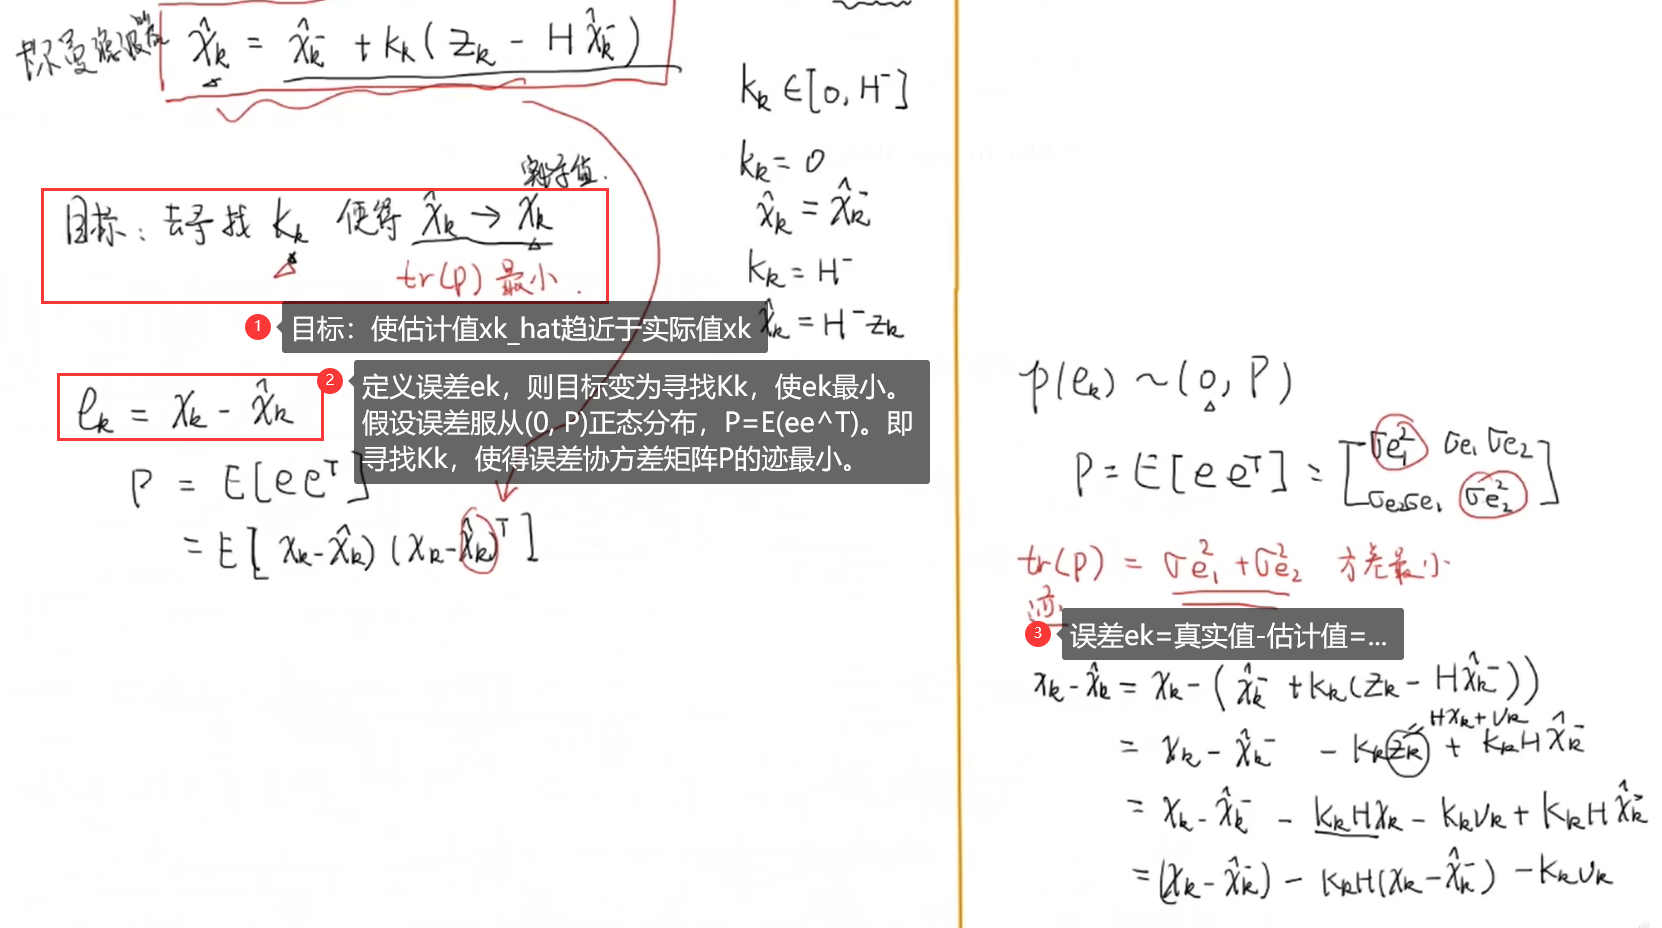 卡尔曼滤波器 x̂k = x̂k⁻ + Kk(Zk - Hx̂k⁻)
Kk ∈ [0, H⁻]
Kk = 0
x̂k = x̂k⁻
Kk = H⁻
x̂k = H⁻zk
实际值.
目标: 去寻找 Kk 使得 x̂k → xk
tr(P) 最小.
1 目标：使估计值xk_hat趋近于实际值xk
2 定义误差ek，则目标变为寻找Kk，使ek最小。
假设误差服从(0, P)正态分布，P=E(ee^T)。即
寻找Kk，使得误差协方差矩阵P的迹最小。
ek = xk - x̂k
P = E[eeᵀ]
= E[(xk - x̂k)(xk - x̂k)ᵀ]
p(ek) ~ (0, P)
P = E[eeᵀ] = [σe₁² σe₁σe₂
σe₂σe₁ σe₂²]
tr(P) = σe₁² + σe₂² 方差最小
迹
3 误差ek=真实值-估计值=...
xk - x̂k = xk - (x̂k⁻ + Kk(Zk - Hx̂k⁻))
Hxk + vk
= xk - x̂k⁻ - Kkzk + KkHx̂k⁻
= xk - x̂k⁻ - KkHxk - Kkvk + KkHx̂k⁻
= (xk - x̂k⁻) - KkH(xk - x̂k⁻) - Kkvk